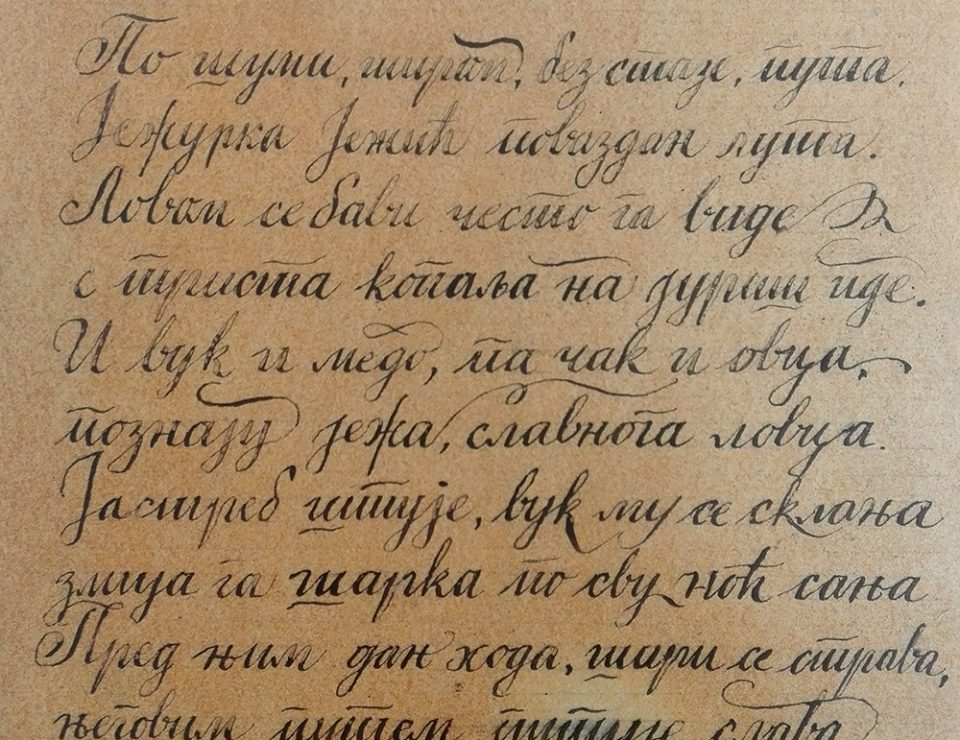 По шуми, широм, без стазе, пута.
Јежурка Јежић поваздан лута.
Ловом се бави често га виде
с триста копаља на јуриш иде.
И вук и медо, па чак и овца,
познају јежа, славнога ловца.
Јастреб штује, вук му се склања
змија га шарка по сву ноћ сања
Пред њим дан хода, шири се страва,
његовим путем путује слава